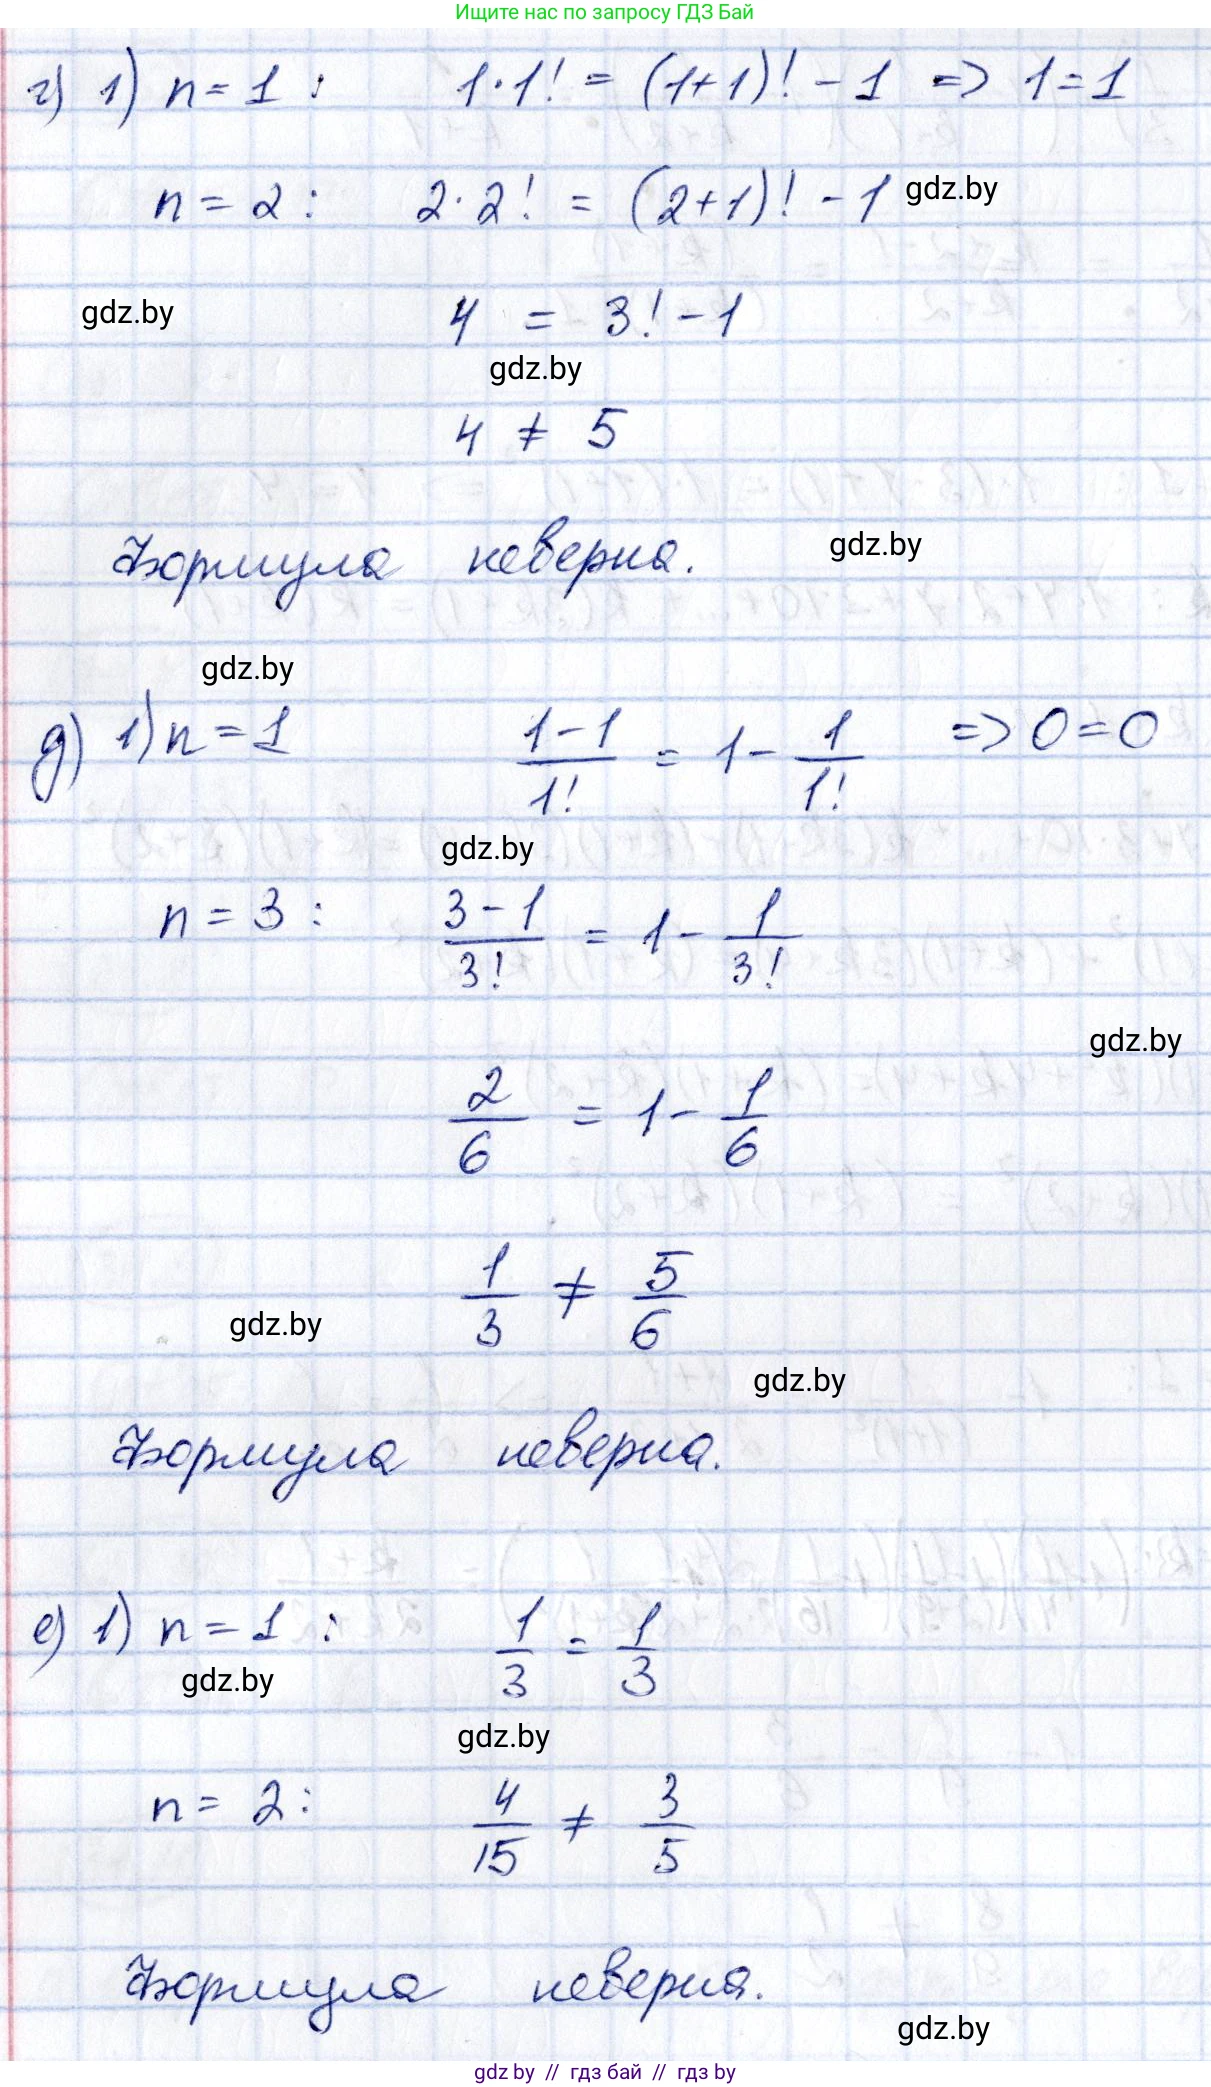 Ищите нас по запросу ГДЗ Бай
г) 1) n = 1 : 1·1! = (1+1)! - 1 => 1 = 1
n = 2 : 2·2! = (2+1)! - 1 gdz.by
gdz.by 4 = 3! - 1
gdz.by
4 ≠ 5
Формула неверна. gdz.by
gdz.by
д) 1) n = 1 (1-1)/1! = 1 - 1/1! => 0 = 0
gdz.by
n = 3 : (3-1)/3! = 1 - 1/3!
gdz.by
2/6 = 1 - 1/6
1/3 ≠ 5/6
gdz.by
gdz.by
Формула неверна.
е) 1) n = 1 : 1/3 = 1/3
gdz.by
gdz.by
n = 2 : 4/15 ≠ 3/5
Формула неверна.
gdz.by
gdz by // гдз бай // гдз by